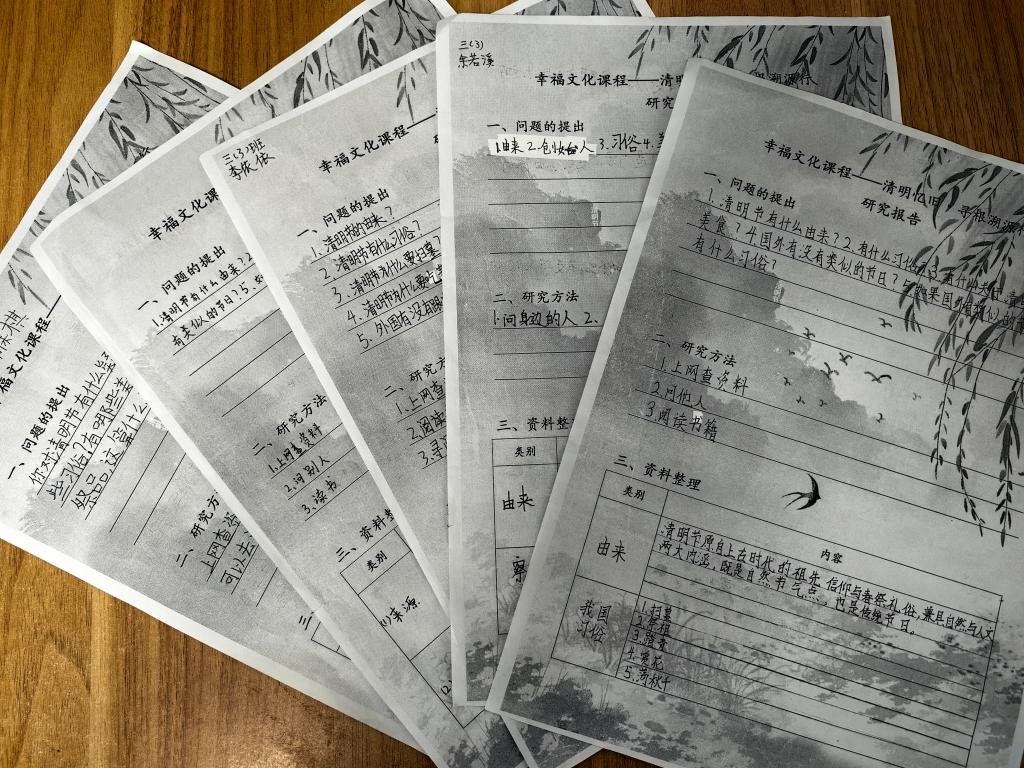 三(3)
余若溪
幸福文化课程——清明
溯源行
研究
一、问题的提出
1.由来 2. 3.习俗 4.
二、研究方法
1.问身边的人 2.
三、资料整
类别
由来
幸福文化课程——清明忆旧 寻根溯源
研究报告
一、问题的提出
1.清明节有什么由来?2.有什么习俗?3.
美食?4.国外有没有类似的节日?5.如果国外有类似的
有什么习俗?
二、研究方法
1.上网查资料
2.问他人
3.阅读书籍
三、资料整理
类别
内容
由来
清明节源自上古时代的祖先信仰与春祭礼俗,兼具自然与人文
两大内涵,既是自然节气点,也是传统节日。
我国
习俗
1.扫墓
2.祭祖
3.踏青
5.荡秋千
三(3)班
李依依
幸福文化课程
一、问题的提出
1.清明节的由来?
2.清明节有什么习俗?
3.清明节为什么要扫墓?
4.清明节为什么要吃
5.外国有没有跟
二、研究方
1.上网查
2.阅读
3.寻
幸福文化课
一、问题的提出
1.清明节有什么由来?2
有类似的节日?5.如
二、研究方法
1.上网查资料
2.问别人
3.读书
三、资料整
类别
来源
福文化课程—
一、问题的提出
你对清明节有什么
些习俗?有哪些
二、研究方
上网查
可以去
三